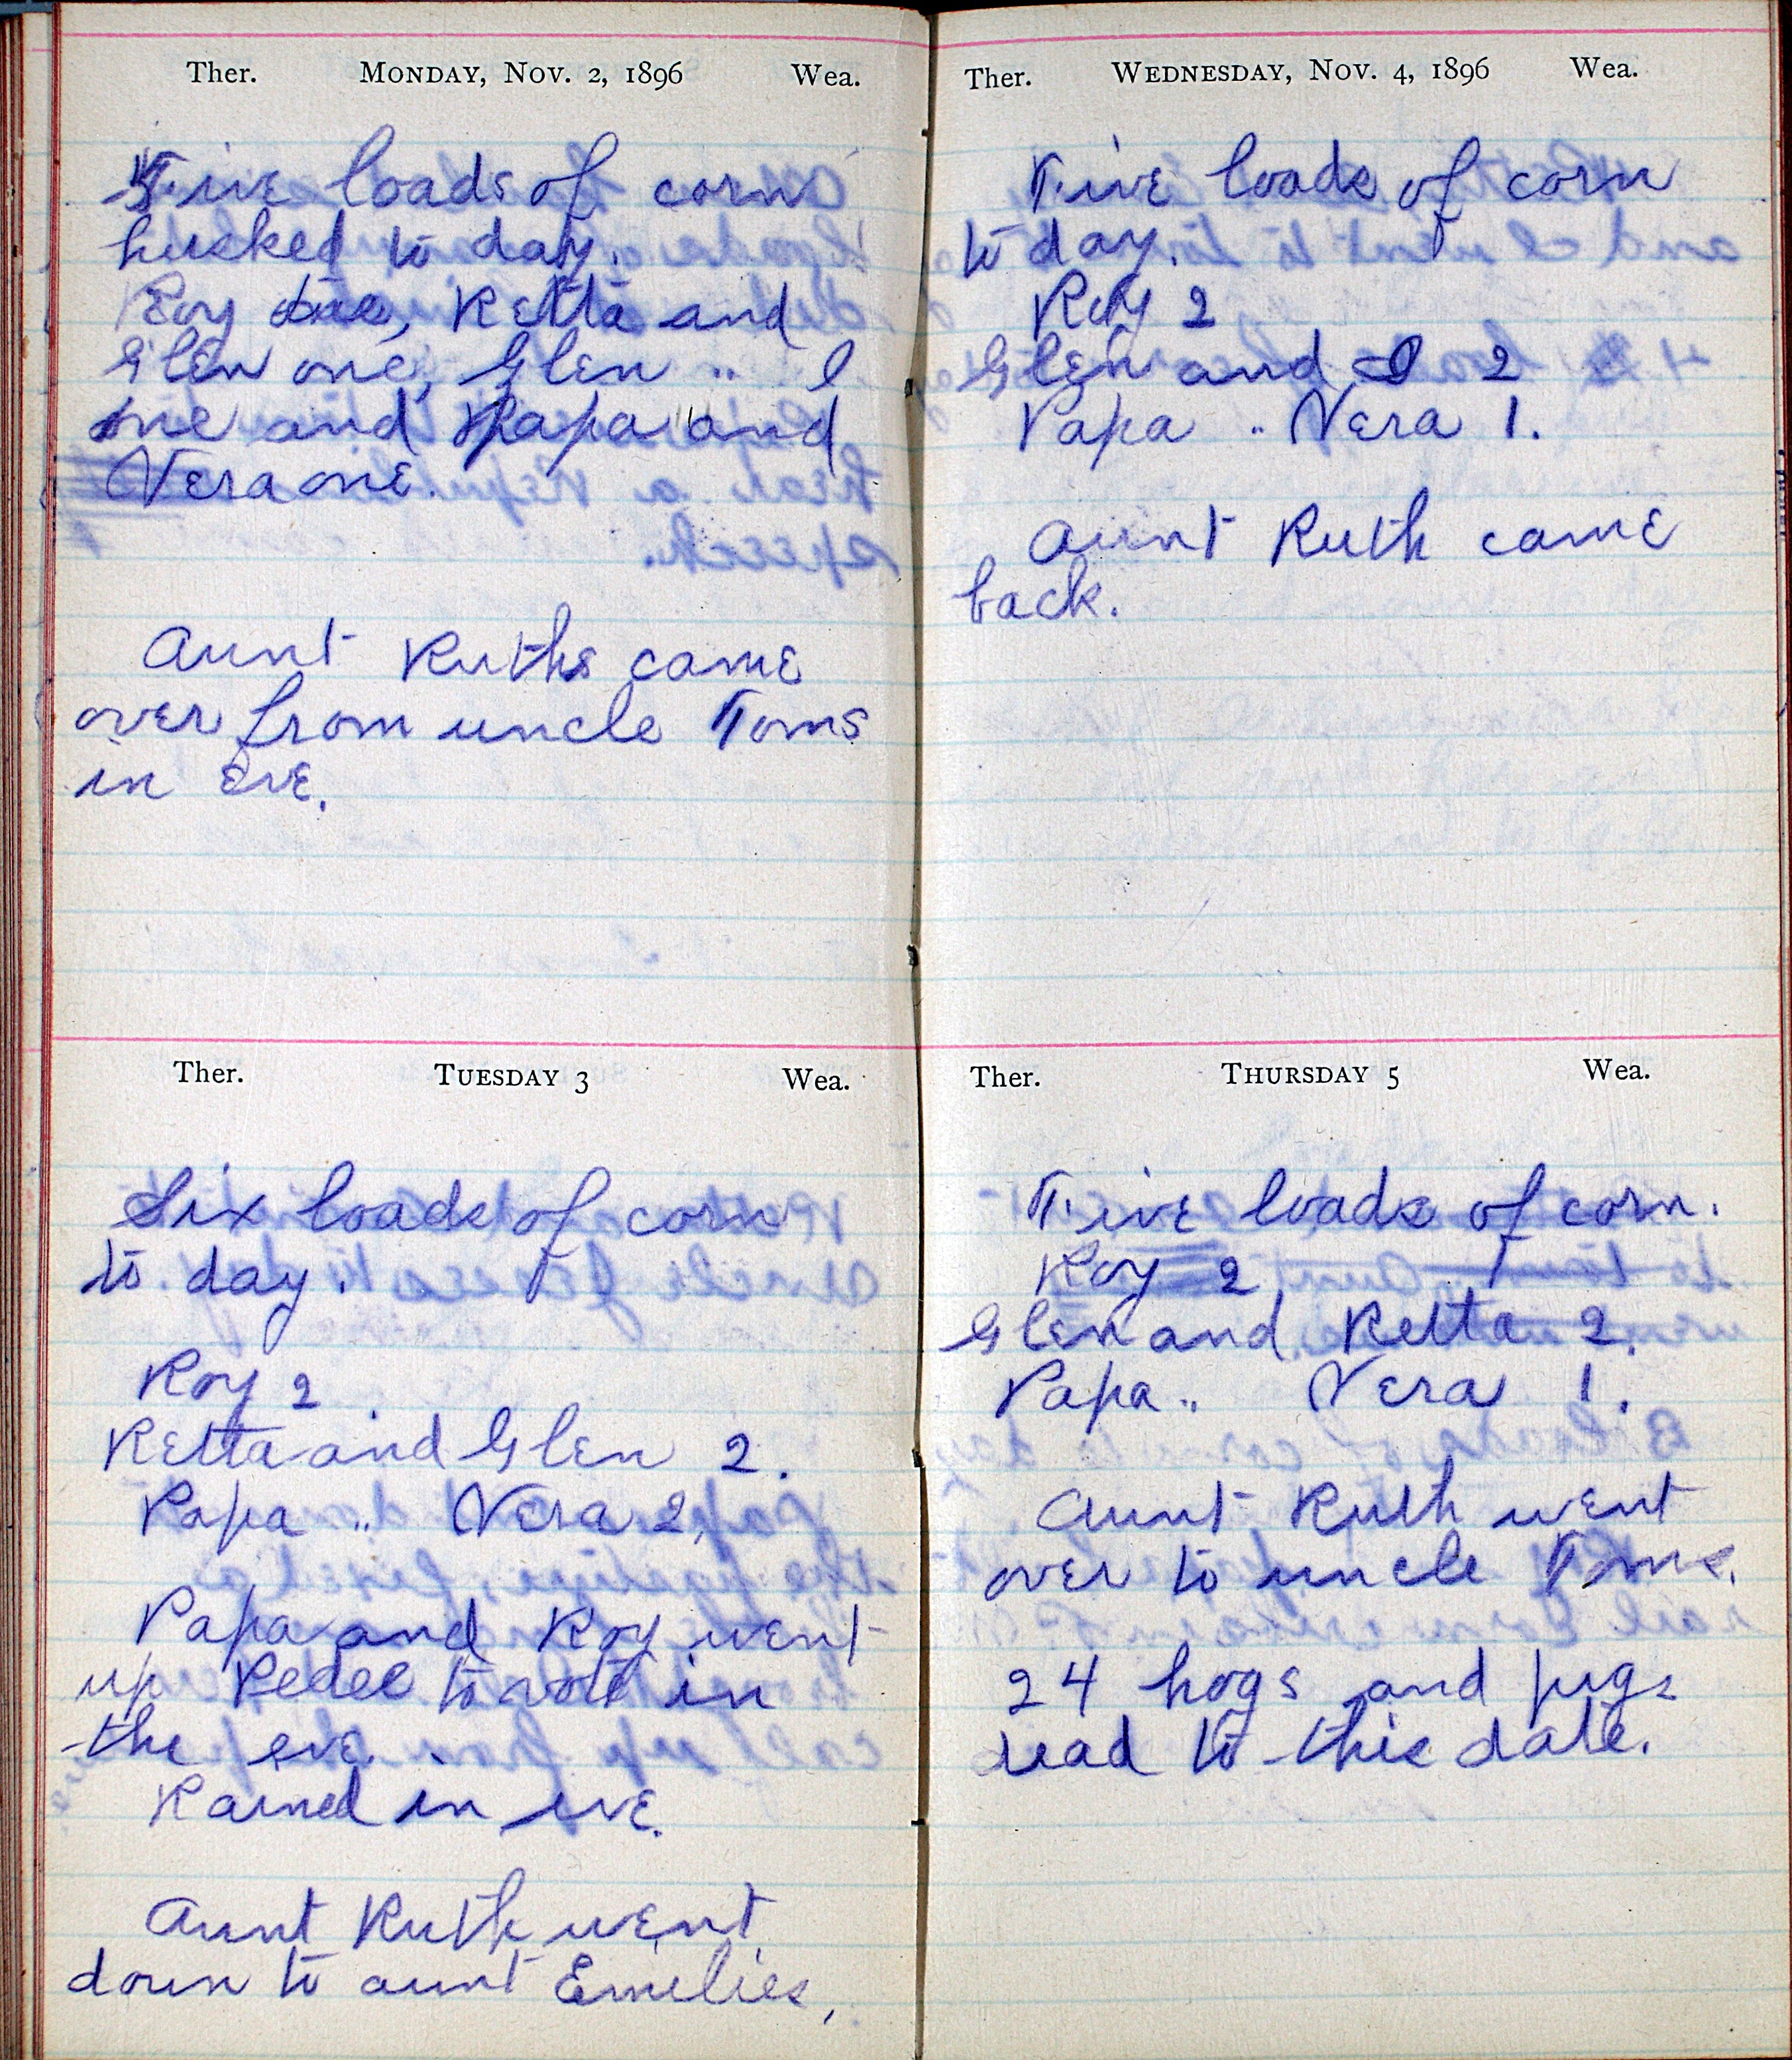 Ther. Monday, Nov. 2, 1896 Wea.
Five loads of corn
husked to day.
Roy two, Retta and
Glen one, Glen " I
one and Papa and
Vera one.
Aunt Ruths came
over from uncle Toms
in eve.
Ther. Tuesday 3 Wea.
Six loads of corn
to day.
Roy 2
Retta and Glen 2.
Papa " Vera 2,
Papa and Roy went
up Pedee to vote in
the eve.
Rained in eve.
Aunt Ruth went
down to aunt Emelies,
Ther. Wednesday, Nov. 4, 1896 Wea.
Five loads of corn
to day.
Roy 2
Glen and I 2
Papa " Vera 1.
Aunt Ruth came
back.
Ther. Thursday 5 Wea.
Five loads of corn.
Roy 2
Glen and Retta 2.
Papa " Vera 1.
Aunt Ruth went
over to uncle Toms.
24 hogs and pigs
dead to this date.